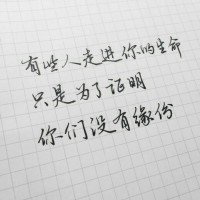 有些人走进你的生命
只是为了证明
你们没有缘份